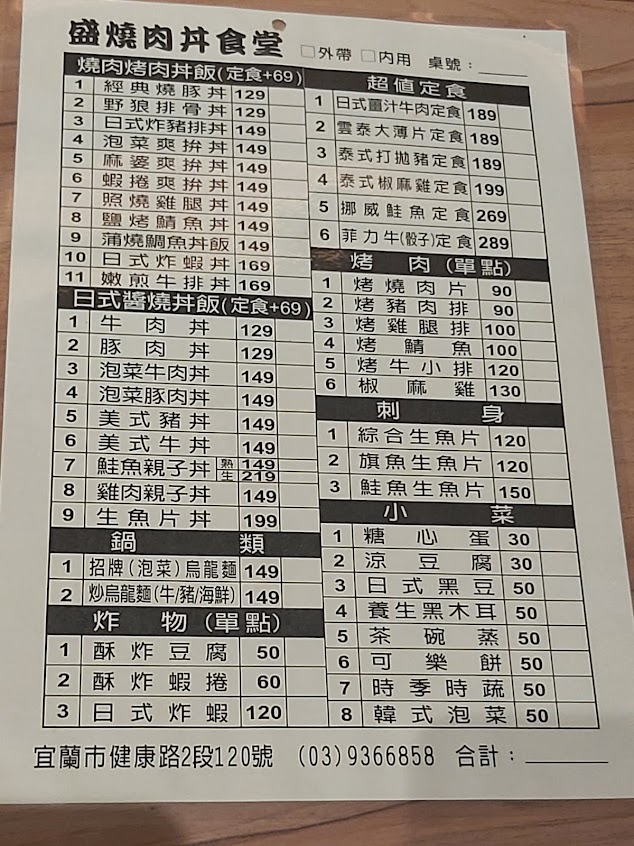 盛燒肉丼食堂 □外帶 □內用 桌號：
燒肉烤肉丼飯(定食+69)
1 經典燒豚丼 129
2 野狼排骨丼 129
3 日式炸豬排丼 149
4 泡菜爽拚丼 149
5 麻婆爽拚丼 149
6 蝦捲爽拚丼 149
7 照燒雞腿丼 149
8 鹽烤鯖魚丼 149
9 蒲燒鯛魚丼飯 149
10 日式炸蝦丼 169
11 嫩煎牛排丼 169
日式醬燒丼飯(定食+69)
1 牛肉丼 129
2 豚肉丼 129
3 泡菜牛肉丼 149
4 泡菜豚肉丼 149
5 美式豬丼 149
6 美式牛丼 149
7 鮭魚親子丼 熟 149 生 219
8 雞肉親子丼 149
9 生魚片丼 199
鍋類
1 招牌(泡菜)烏龍麵 149
2 炒烏龍麵(牛/豬/海鮮) 149
炸物(單點)
1 酥炸豆腐 50
2 酥炸蝦捲 60
3 日式炸蝦 120
超值定食
1 日式薑汁牛肉定食 189
2 雲泰大薄片定食 189
3 泰式打拋豬定食 189
4 泰式椒麻雞定食 199
5 挪威鮭魚定食 269
6 菲力牛(骰子)定食 289
烤肉(單點)
1 烤燒肉片 90
2 烤豬肉排 90
3 烤雞腿排 100
4 烤鯖魚 100
5 烤牛小排 120
6 椒麻雞 130
刺身
1 綜合生魚片 120
2 旗魚生魚片 120
3 鮭魚生魚片 150
小菜
1 糖心蛋 30
2 涼豆腐 30
3 日式黑豆 50
4 養生黑木耳 50
5 茶碗蒸 50
6 可樂餅 50
7 時季時蔬 50
8 韓式泡菜 50
宜蘭市健康路2段120號 (03)9366858 合計：